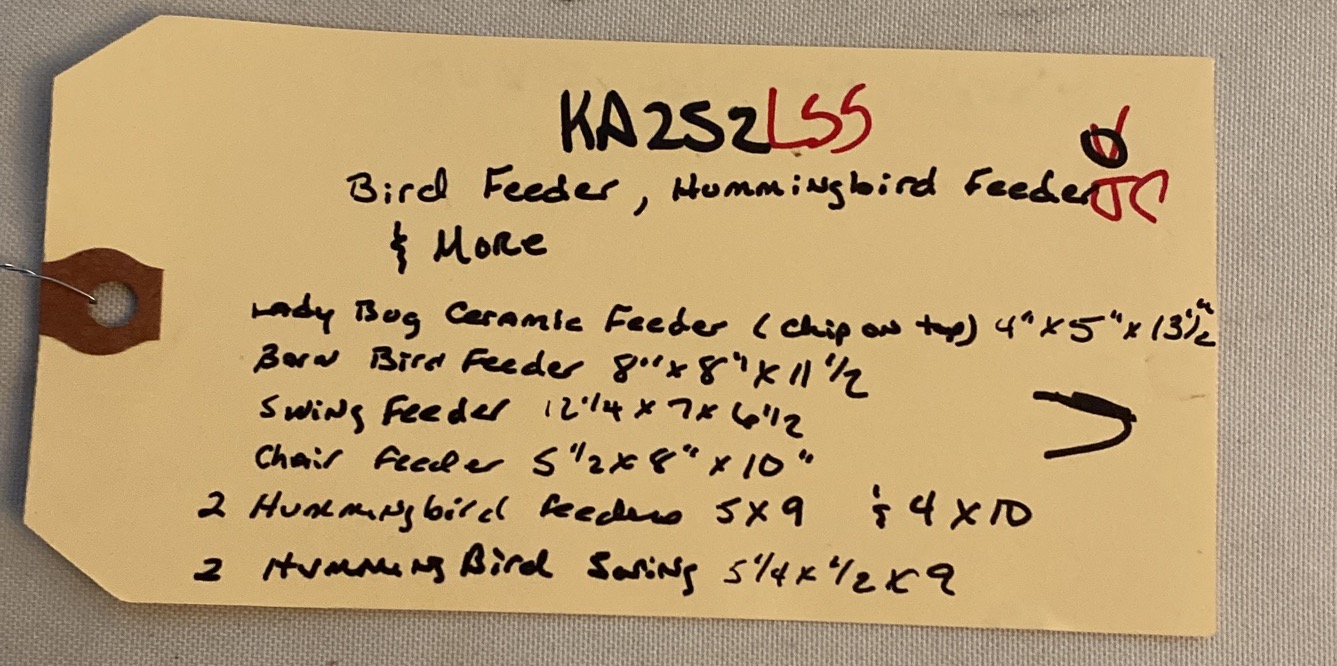 KA252LSS
Bird Feeder, Hummingbird Feeder JC
& More
Lady Bug Ceramic Feeder (chip on top) 4" x 5" x 13 1/2"
Barn Bird Feeder 8" x 8" x 11 1/2
Swing Feeder 12 1/4 x 7 x 6 1/2
Chair Feeder 5 1/2 x 8" x 10"
2 Hummingbird Feeders 5 x 9 & 4 x 10
2 Humming Bird Swing 5 1/4 x 1/2 x 9